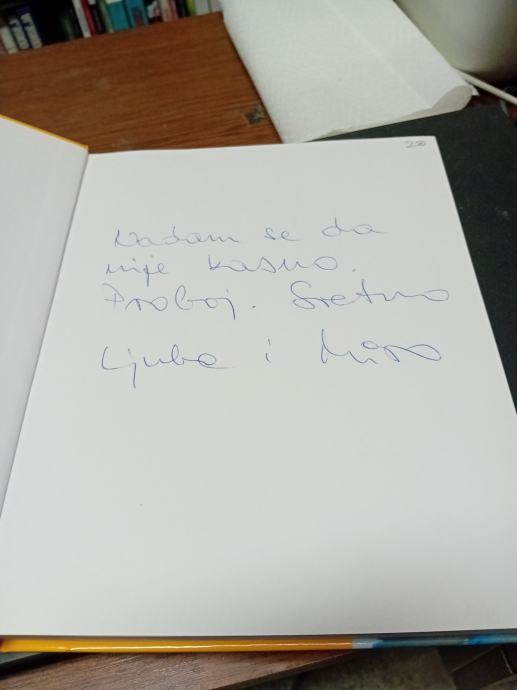 200
Nadam se da
nije kasno.
Probaj. Sretno
Ljuba i Miro